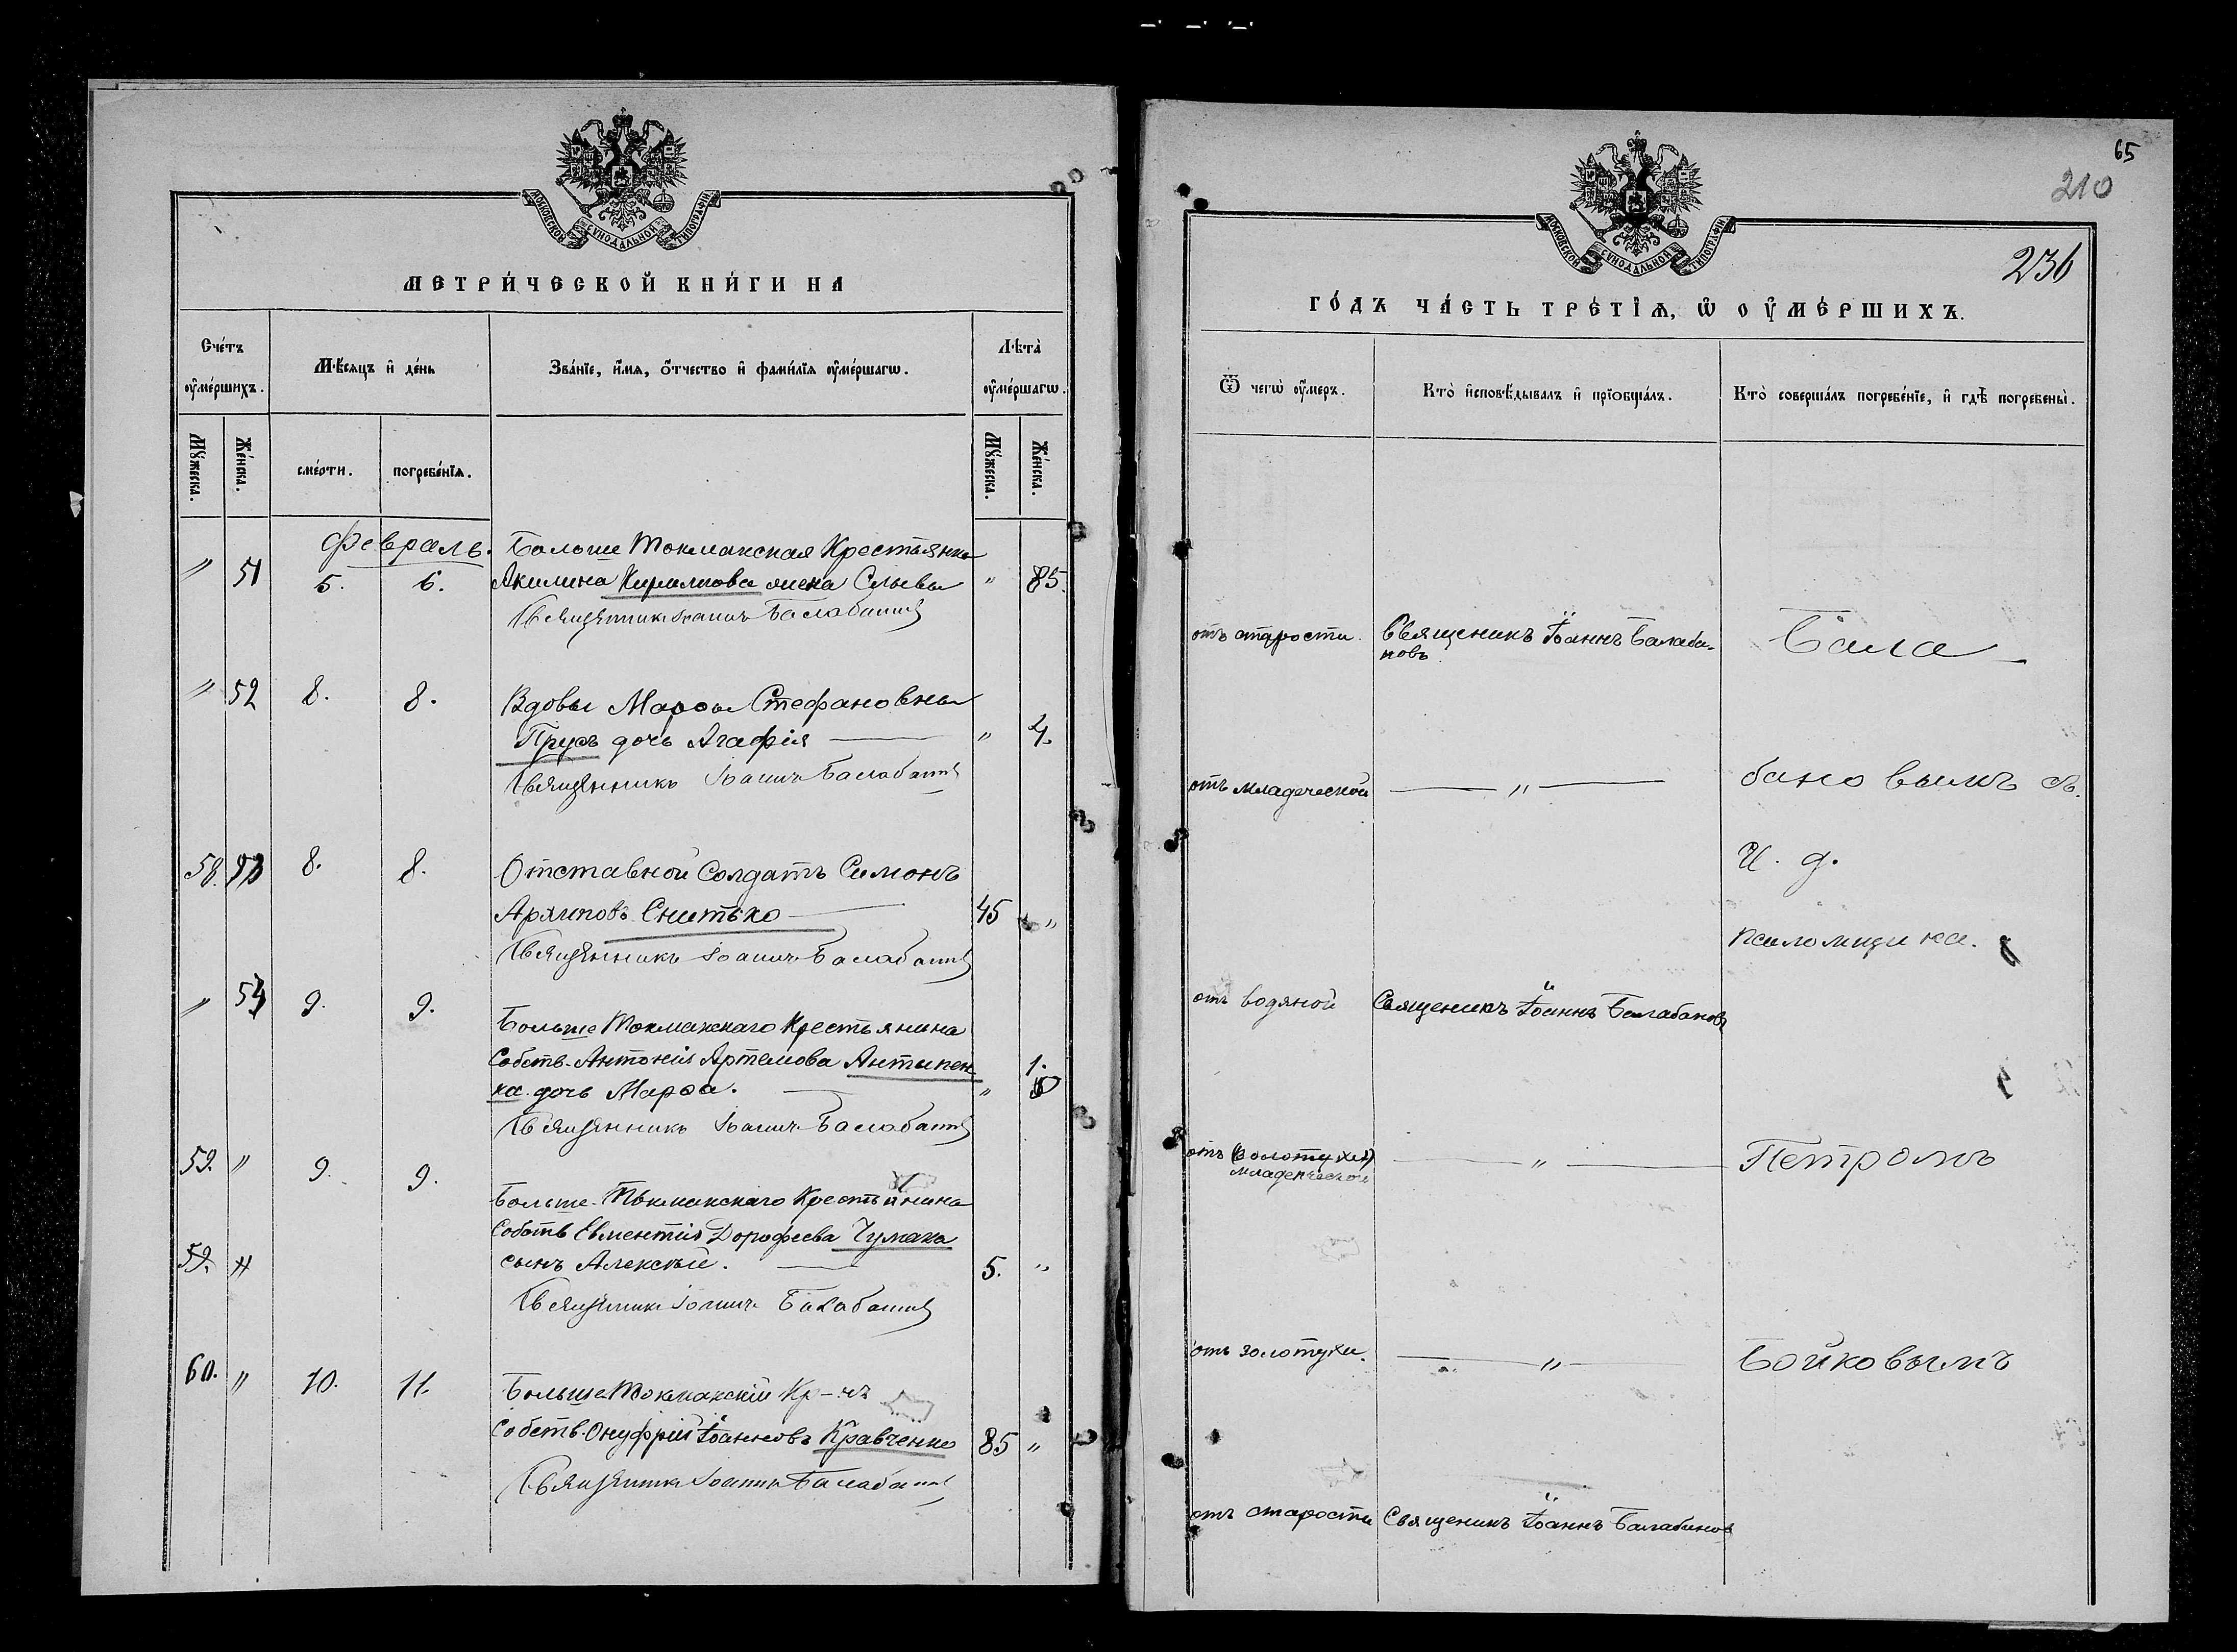 МОСКОВСКОЙ СѴНОДАЛЬНОЙ ТИПОГРАФІИ
МЕТРИ́ЧЕСКОЙ КНИ́ГИ НА
Сче́тъ оу҆ме́ршихъ.
Мѣ́сяцъ и҆ де́нь
Зва́нїе, и҆́мя, ѻ҆́тчество и҆ фами́лїя оу҆ме́ршагѡ.
Лѣ́та̀ оу҆ме́ршагѡ.
Мꙋ́жеска.
Же́нска.
сме́рти.
погребе́нїѧ.
Мꙋ́жеска.
Же́нска.
Февраль.
Больше Токмакская Крестьянка
" 51 5. 6. Акилина Кирилова жена Сыевы " 85.
Священникъ Іоаннъ Балабановъ
" 52 8. 8. Вдовы Марѳы Стефановны
Прусъ дочь Агафія " 4.
Священникъ Іоаннъ Балабановъ
58. 8. 8. Отставной Солдатъ Симонъ
Архиповъ Снитько 45 "
Священникъ Іоаннъ Балабановъ
" 54 9. 9. Больше Токмакскаго Крестьянина
Собств. Антонія Артемова Антипен-
ка дочь Марѳа. " 1.
Священникъ Іоаннъ Балабановъ
59. " 9. 9. Больше-Токмакскаго Крестьянина
Собств Евментія Дорофеева Чумака
59. " сынъ Алексѣй. 5. "
Священникъ Іоаннъ Балабановъ
60. " 10. 11. Больше Токмакскій Кр-нъ
Собств. Онуфрій Іоанновъ Кравченко 85 "
Священникъ Іоаннъ Балабановъ
65
210
236
МОСКОВСКОЙ СѴНОДАЛЬНОЙ ТИПОГРАФІИ
ГО́ДЪ ЧА́СТЬ ТРЕ́ТЇѦ, Ѡ҆ ОУ҆МЕ́РШИХЪ.
Ѿ чегѡ̀ оу҆́меръ.
Кто̀ и҆сповѣ́дывалъ и҆ прїобща́лъ.
Кто̀ соверша́лъ погребе́нїе, и҆ гдѣ̀ погребены̀.
отъ старости. Священикъ Іоаннъ Балаба-
новъ
Бала-
отъ младеческой " бановымъ съ
И. д.
псаломщика.
отъ водяной Священикъ Іоаннъ Балабановъ
отъ (золотухи) " Петромъ
младенческой
отъ золотухи. " Бойковымъ
отъ старости Священикъ Іоаннъ Балабановъ